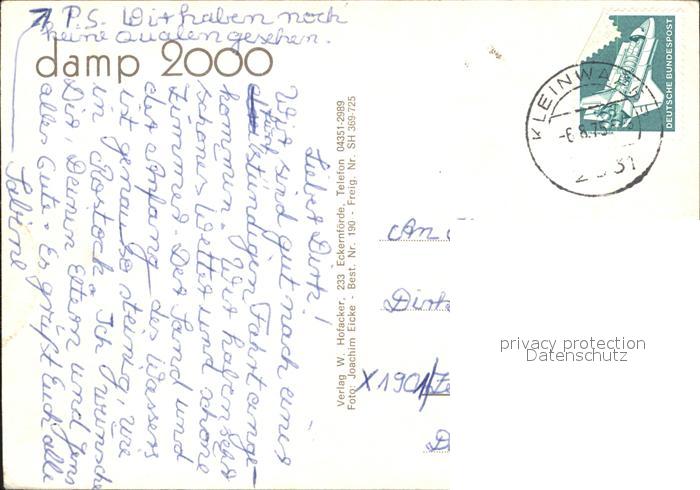 P.S. Wir haben noch
keine Qualen gesehen.
damp 2000
Lieber Dirk!
Wir sind gut nach einer
fünfstündigen Fahrt ange-
kommen. Wir haben sehr
schönes Wetter und schöne
Zimmer. Der Sand und
der Anfang des Wassers
ist genau so steinig, wie
in Rostock. Ich wünsche
Dir Deinen Eltern und Jens
alles Gute. Es grüßt Euch alle
Sabine
Verlag W. Hofacker, 233 Eckernförde, Telefon 04351-2989
Foto: Joachim Eicke - Best. Nr. 190 - Freig. Nr. SH 369-725
DEUTSCHE BUNDESPOST
KLEINWA
-6.8.75
An
Dirk
X1901
privacy protection
Datenschutz